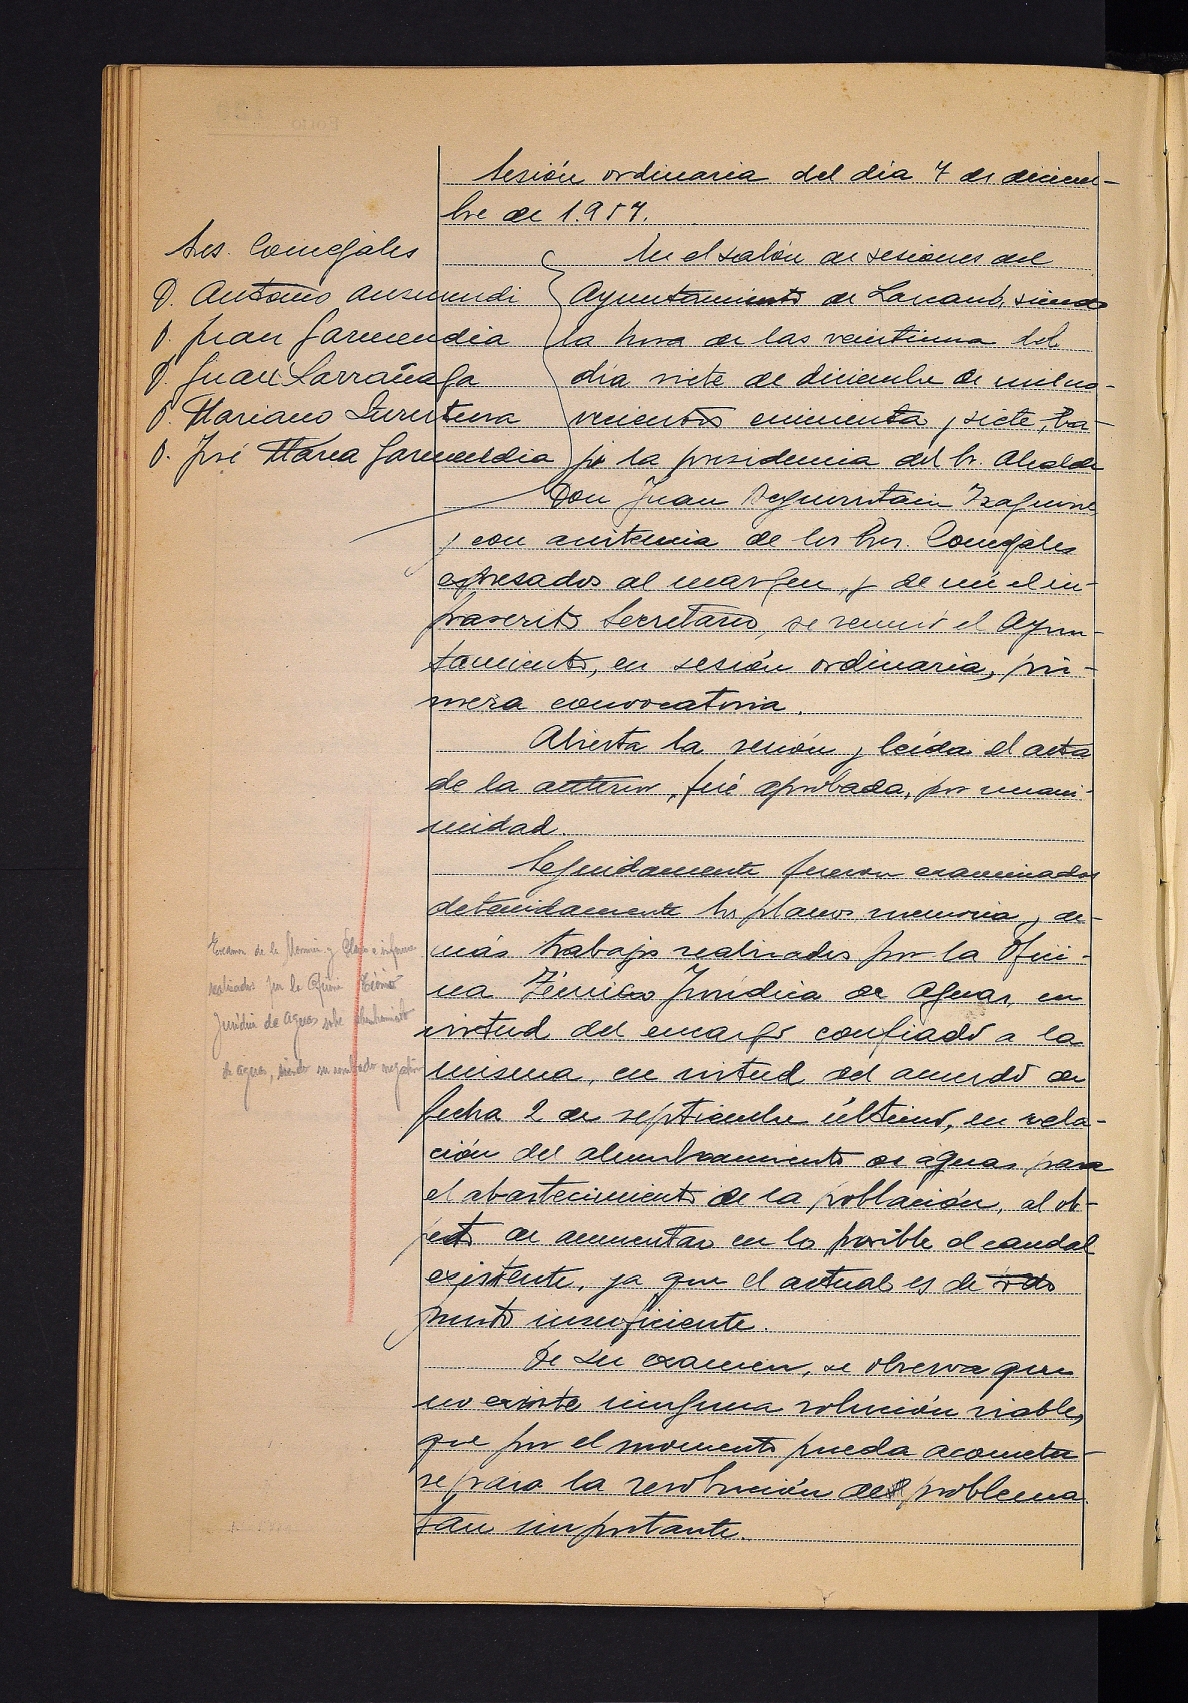 Sesión ordinaria del día 7 de diciem-
bre de 1.957.
Sres. Concejales
D. Antonio Ausmendi
D. Juan Garmendia
D. Juan Larrañaga
D. Mariano
D. José María Garmendia
En el salón de sesiones del
Ayuntamiento de Lazcano, siendo
la hora de las veintiuna del
día siete de diciembre de mil no-
vecientos cincuenta y siete, ba-
jo la presidencia del Sr. Alcalde
Don Juan Izaguirre
y con asistencia de los Sres. Concejales
expresados al margen, y de mí el in-
frascrito Secretario, se reunió el Ayun-
tamiento, en sesión ordinaria, pri-
mera convocatoria.
Abierta la sesión y leída el acta
de la anterior, fué aprobada, por unani-
midad.
Segundamente fueron examinados
detenidamente los planos memoria y de-
más trabajos realizados por la Ofici-
na Técnico Jurídica de Aguas, en
virtud del encargo confiado a la
misma, en virtud del acuerdo de
fecha 2 de septiembre último, en rela-
ción del alumbramiento de aguas para
el abastecimiento de la población, al ob-
jeto de aumentar en lo posible el caudal
existente, ya que el actual es de todo
punto insuficiente.
De su examen, se observa que
no existe ninguna solución viable,
que por el momento pueda acometer-
se para la resolución del problema
tan importante.
Examen de la Memoria y Planos e informe
realizados por la Oficina Técnico
Jurídica de Aguas sobre alumbramiento
de aguas, siendo su resultado negativo
Folio